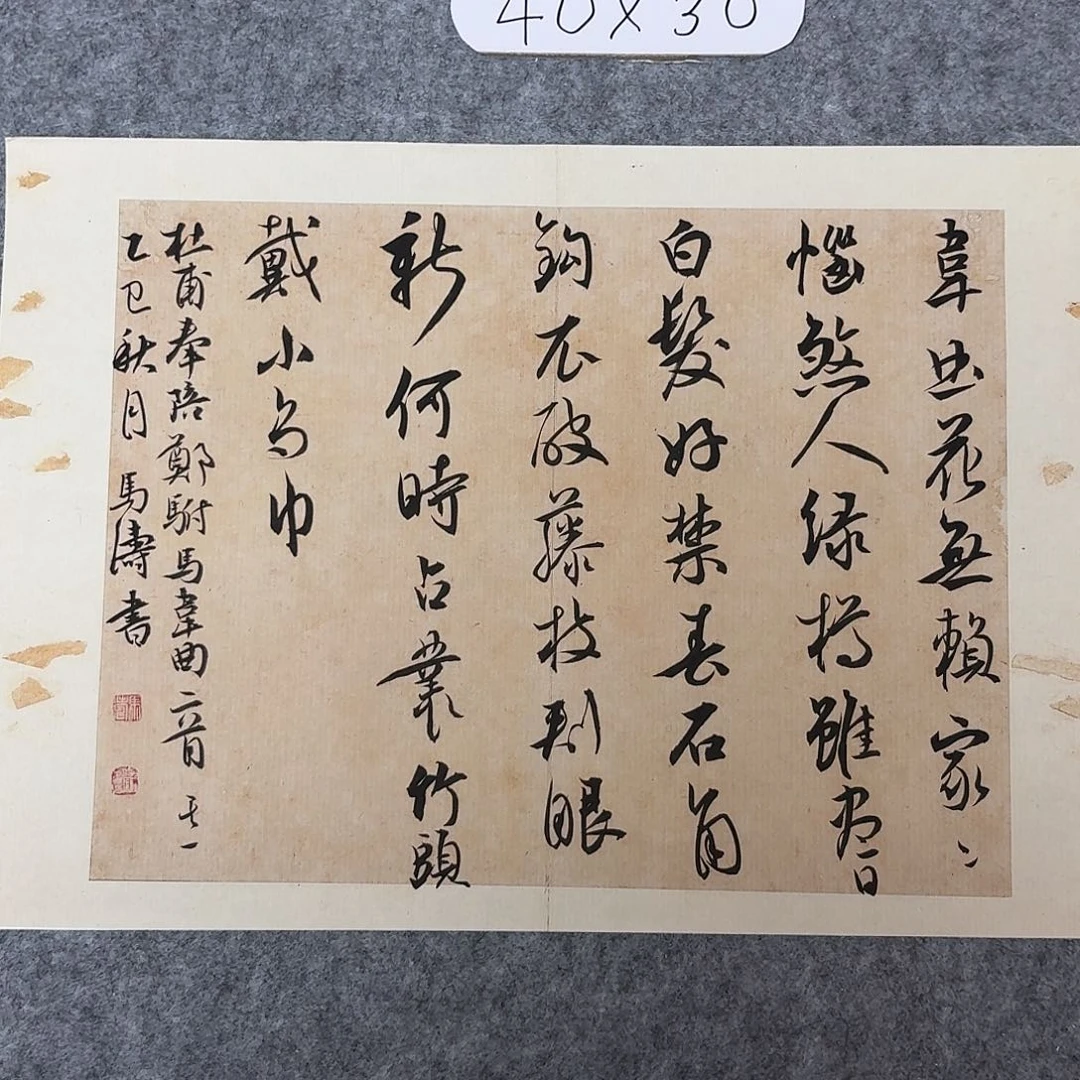 40X30
韋曲花無賴家〻
惱煞人緑樽雖盡日
白髮好禁春石角
鈎衣破藤枝刺眼
新何時占叢竹頭
戴小烏巾
杜甫奉陪鄭駙馬韋曲二首 其一
乙巳秋月 馬濤書